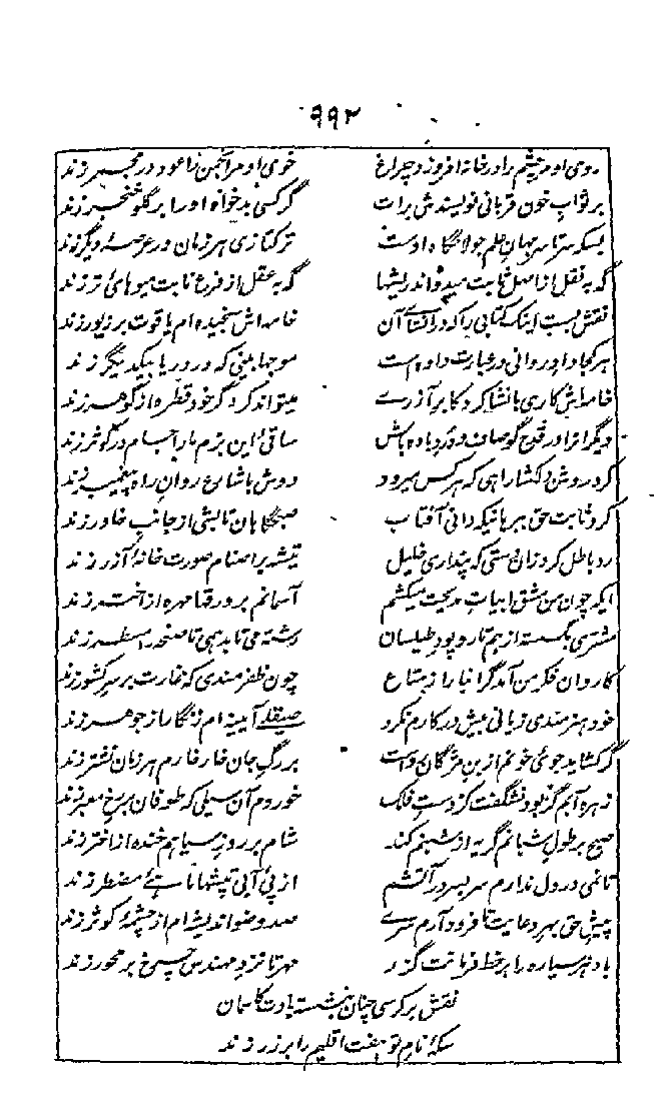 ۹۹۲
روی او مر چشم را در خانه افروزد چراغ خوی او مر انجمن را عود در مجمر زند
بر ثواب خون قربانی نویسندش برات گر کسی بدخواه او را بر گلو خنجر زند
بسکه سرتاسر جهان علم جولانگاه اوست ترکتازی هر زمان در عرصهٔ دیگر زند
گه به نقل از اصل ثابت میدواند ریشها گه به عقل از فرع ثابت میوهای تر زند
نقش بست اینک کتابی را که در انشای آن خامه اش سنجیده ام یاقوت بر زیور زند
هر کجا داد روانی در عبارت داده است موجها بینی که در دریا بیکدیگر زند
خامه اش کاری بانشا کرد کابر آزرے میتواند کرد گر خود قطره از گوهر زند
دیگرانرا در قدح گو صاف و دُرد باده باش ساقیٔ این بزم ما را جام در کوثر زند
کرد روشن دلکشا راهی که هر کس میرود دوش با شارع روان راه پیغمبر زند
کرد ثابت حق ببرهانیکه دانی آفتاب صبحگاهان تابشی از جانب خاور زند
رد باطل کرد زان دستی که پنداری خلیل تیشه بر اصنام صورت خانهٔ آذر زند
ایکه چون من مشق ابیات مدیحت میکشم آسمانم بر ورقها مهره از اختر زند
مشتری بگسسته از هم تار و پود طیلسان رشته می تابد همی تا صفحه را مسطر زند
کاروان فکر من آمد گرانبار از متاع چون ظفرمندی که غارت بر سر کشور زند
خود هنرمندی زیانی بیش در کارم نکرد صیقلے آیینه ام زنگار از جوهر زند
گر کشاید جوئی خونم از بن مژگان رواست بر رگ جان خار خارم هر زمان نشتر زند
زهره آبم گر بود نشگفت کز دست فلک خورده ام آن سیلی که طوفان بر رخ معبر زند
صبح بر طول شبانم گریه از شبنم کند شام بر روز سیاهم خنده از اختر زند
تا غمی در دل ندارم سر بسر در آتشم از پی آبی تپشها تا بئے مضطر زند
پیش حق بهر دعایت تا فرود آرم سرے صد وضو اندیشه ام از چشمهٔ کوثر زند
باد هر سیاره را بر خط فرمانت گذر مهر تا نزد مهندس چرخ بر محور زند
نقش بر کرسی چنان بنشسته بادت کاسمان
سکهٔ نام تو هفت اقلیم را بر زر زند